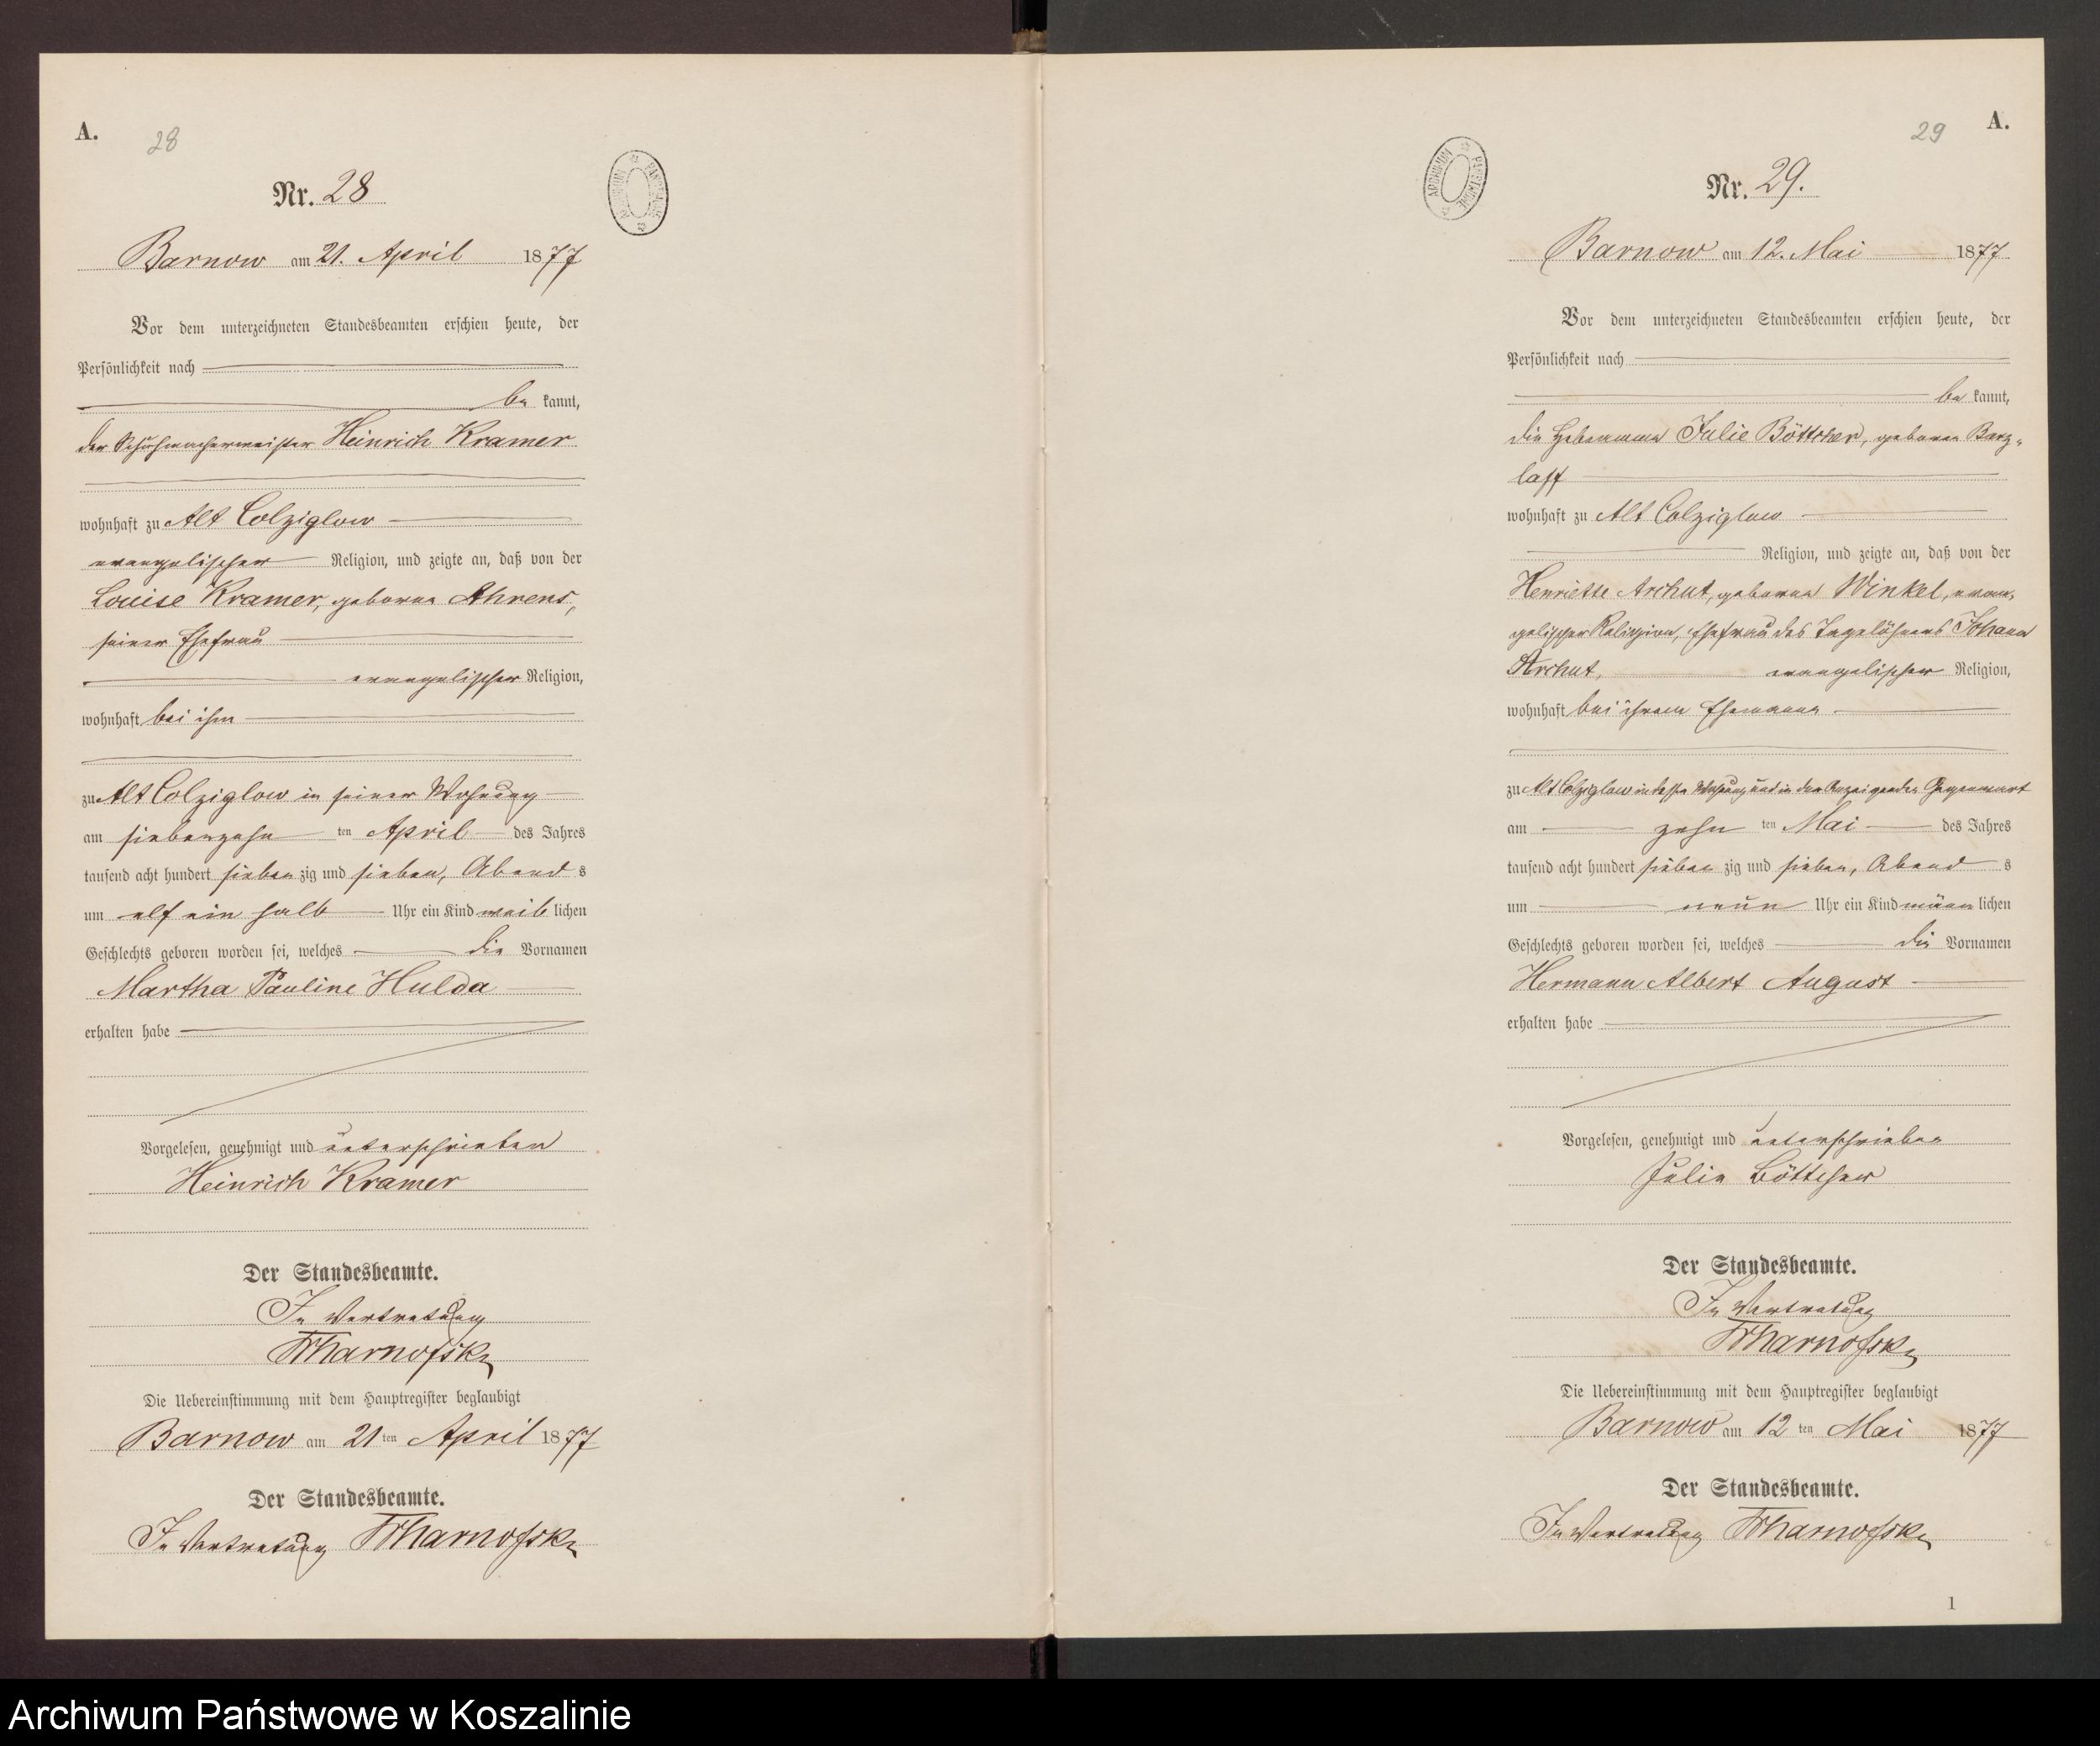 A.
28
Nr. 28
Barnow am 21. April 1877
Vor dem unterzeichneten Standesbeamten erschien heute, der
Persönlichkeit nach
be kannt,
der Schuhmachermeister Heinrich Kramer
wohnhaft zu Alt Colziglow
evangelischer Religion, und zeigte an, daß von der
Louise Kramer, geborne Ahrens,
seiner Ehefrau
evangelischer Religion,
wohnhaft bei ihm
zu Alt Colziglow in seiner Wohnung
am siebenzehn ten April des Jahres
tausend acht hundert sieben zig und sieben, Abend s
um elf ein halb Uhr ein Kind weib lichen
Geschlechts geboren worden sei, welches die Vornamen
Martha Pauline Hulda
erhalten habe
Vorgelesen, genehmigt und unterschrieben
Heinrich Kramer
Der Standesbeamte.
In Vertretung
Die Uebereinstimmung mit dem Hauptregister beglaubigt
Barnow am 21 ten April 1877
Der Standesbeamte.
In Vertretung
ARCHIWUM PAŃSTWOWE
A.
29
Nr. 29.
Barnow am 12. Mai 1877
Vor dem unterzeichneten Standesbeamten erschien heute, der
Persönlichkeit nach
be kannt,
die Hebamme Julie Böttcher, geborne Barz-
laff
wohnhaft zu Alt Colziglow
Religion, und zeigte an, daß von der
Henriette Archut, geborne Winkel, evan-
gelischer Religion, Ehefrau des Tagelöhners Johann
Archut, evangelischer Religion,
wohnhaft bei ihrem Ehemann
zu Alt Colziglow in dessen Wohnung und in der Anzeigenden Gegenwart
am zehn ten Mai des Jahres
tausend acht hundert sieben zig und sieben, Abend s
um neun Uhr ein Kind männ lichen
Geschlechts geboren worden sei, welches die Vornamen
Hermann Albert August
erhalten habe
Vorgelesen, genehmigt und unterschrieben
Julie Böttcher
Der Standesbeamte.
In Vertretung
Die Uebereinstimmung mit dem Hauptregister beglaubigt
Barnow am 12 ten Mai 1877
Der Standesbeamte.
In Vertretung
1
Archiwum Państwowe w Koszalinie